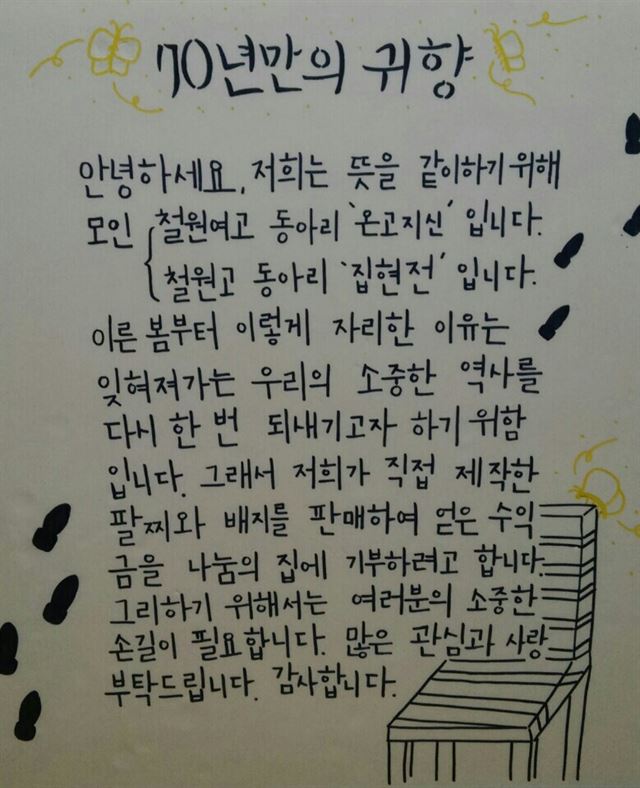 70년만의 귀향
안녕하세요, 저희는 뜻을 같이하기 위해
모인 철원여고 동아리 '온고지신' 입니다.
철원고 동아리 '집현전' 입니다.
이른 봄부터 이렇게 자리한 이유는
잊혀져가는 우리의 소중한 역사를
다시 한 번 되새기고자 하기 위함
입니다. 그래서 저희가 직접 제작한
팔찌와 배지를 판매하여 얻은 수익
금을 나눔의 집에 기부하려고 합니다.
그리하기 위해서는 여러분의 소중한
손길이 필요합니다. 많은 관심과 사랑
부탁드립니다. 감사합니다.